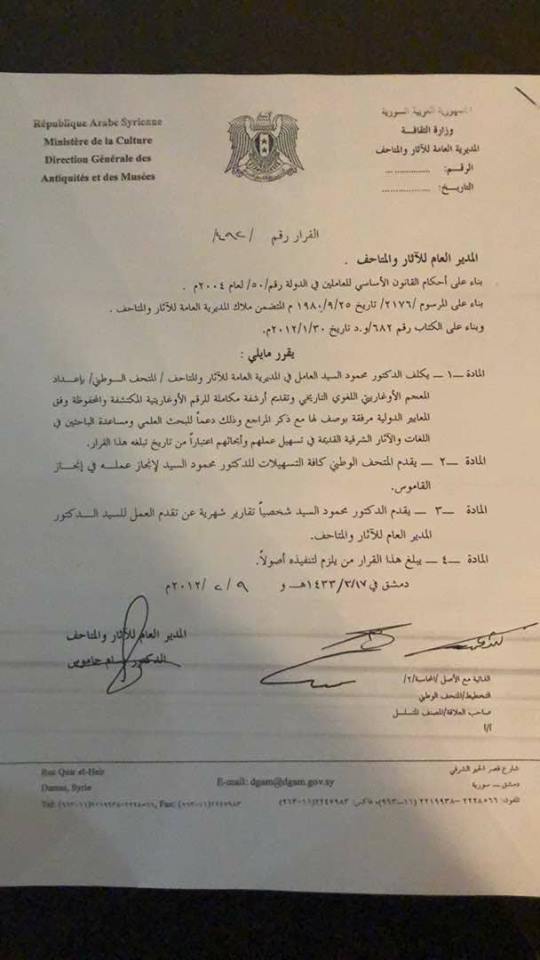 République Arabe Syrienne
Ministère de la Culture
Direction Générale des
Antiquités et des Musées
الجمهورية العربية السورية
وزارة الثقافة
المديرية العامة للآثار والمتاحف
الرقم: ..............
التاريخ: ..............
القرار رقم / /
المدير العام للآثار والمتاحف .
بناء على أحكام القانون الأساسي للعاملين في الدولة رقم/٥٠/ لعام ٢٠٠٤م .
بناء على المرسوم /٢١٧٦/ تاريخ ١٩٨٠/٩/٢٥ م المتضمن ملاك المديرية العامة للآثار والمتاحف .
وبناء على الكتاب رقم ٦٨٢/و.د تاريخ ٢٠١٢/١/٣٠م.
يقرر مايلي :
المادة ــ١ ــ يكلف الدكتور محمود السيد العامل في المديرية العامة للآثار والمتاحف / المتحف الوطني/ بإعداد
المعجم الأوغاريتي اللغوي التاريخي وتقديم أرشفة متكاملة للرقم الأوغاريتية المكتشفة والمحفوظة وفق
المعايير الدولية مرفقة بوصف لها مع ذكر المراجع وذلك دعماً للبحث العلمي ومساعدة الباحثين في
اللغات والآثار الشرقية القديمة في تسهيل عملهم وأبحاثهم اعتباراً من تاريخ تبلغه هذا القرار.
المادة ــ٢ ــ يقدم المتحف الوطني كافة التسهيلات للدكتور محمود السيد لإنجاز عمله في إنجاز
القاموس.
المادة ــ٣ ــ يقدم الدكتور محمود السيد شخصياً تقارير شهرية عن تقدم العمل للسيد الدكتور
المدير العام للآثار والمتاحف.
المادة ــ٤ ــ يبلغ هذا القرار من يلزم لتنفيذه أصولاً.
دمشق في ١٤٣٣/٣/١٧هـ و ٩ / ٢ /٢٠١٢م
المدير العام للآثار والمتاحف
الدكتور بسام جاموس
الغاية مع الأصل /المحاسبة/٢/
التخطيط/المتحف الوطني
صاحب العلاقة/المصنف المتسلسل
أ/أ
Rue Qasr el-Heir
Damas, Syrie
Tel: (٩٦٣-١١)٢٢١٩٩٣٨-٢٢٢٨٥٦٦, Fax: (٩٦٣-١١)٢٢٤٧٩٨٣
E-mail: dgam@dgam.gov.sy
شارع قصر الحير الشرقي
دمشق ــ سورية
تلفون: ٢٢٢٨٥٦٦ -٢٢١٩٩٣٨ (١١-٩٦٣)، فاكس: ٢٢٤٧٩٨٣(١١-٩٦٣)